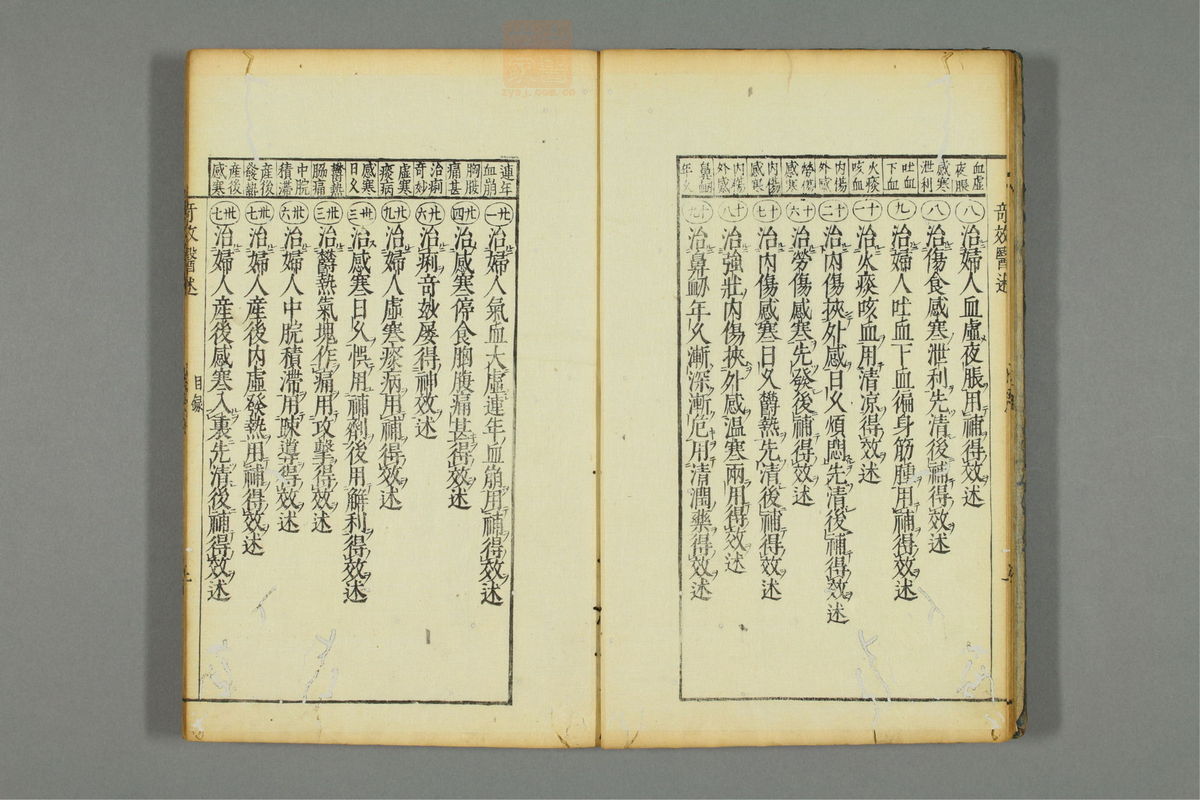 奇效醫述
血虛夜脹
八
治婦人血虛夜脹用補得效述
感寒泄利
八
治傷食感寒泄利先清後補得效述
吐血下血
九
治婦人吐血下血徧身筋腫用補得效述
火痰咳血
十一
治火痰咳血用清凉得效述
內傷外感
十二
治內傷挾外感日久煩悶先清後補得效述
勞傷感寒
十六
治勞傷感寒先發後補得效述
內傷感寒
十七
治內傷感寒日久欝熱先清後補得效述
內傷外感
十八
治強壯內傷挾外感温寒兩用得效述
鼻衂年久
十九
治鼻衂年久漸深漸危用清潤藥得效述
連年血崩
廿一
治婦人氣血大虛連年血崩用補得效述
胸腹痛甚
廿四
治感寒停食胸腹痛甚得效述
治痢奇妙
廿六
治痢奇妙屡得神效述
虛寒痰病
廿九
治婦人虛寒痰病用補得效述
感寒日久
卅三
治感寒日久悞用補劑後用解利得效述
欝熱脇痛
卅三
治欝熱氣塊作痛用攻擊得效述
中脘積滯
卅六
治婦人中脘積滯用踈導得效述
產後發熱
卅七
治婦人產後內虛發熱用補得效述
產後感寒
卅七
治婦人產後感寒入裏先清後補得效述
奇效醫述
目錄